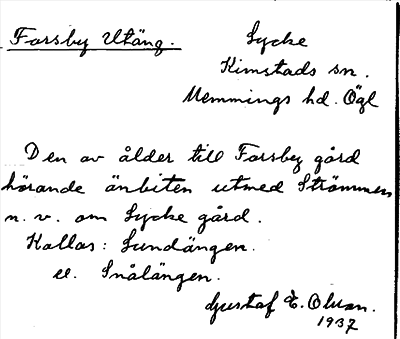 Forsby Utäng. Lycke
Kimstads sn.
Memmings hd. Ögl
Den av ålder till Forsby gård
hörande änbiten utmed Strömmen
n. v. om Lycke gård.
Kallas: Lundängen.
el. Snålängen.
Gustaf E. Olsson.
1937